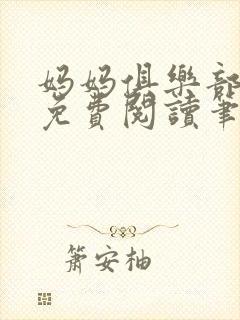 妈妈俱樂部
免費閱讀筆
簫安柚